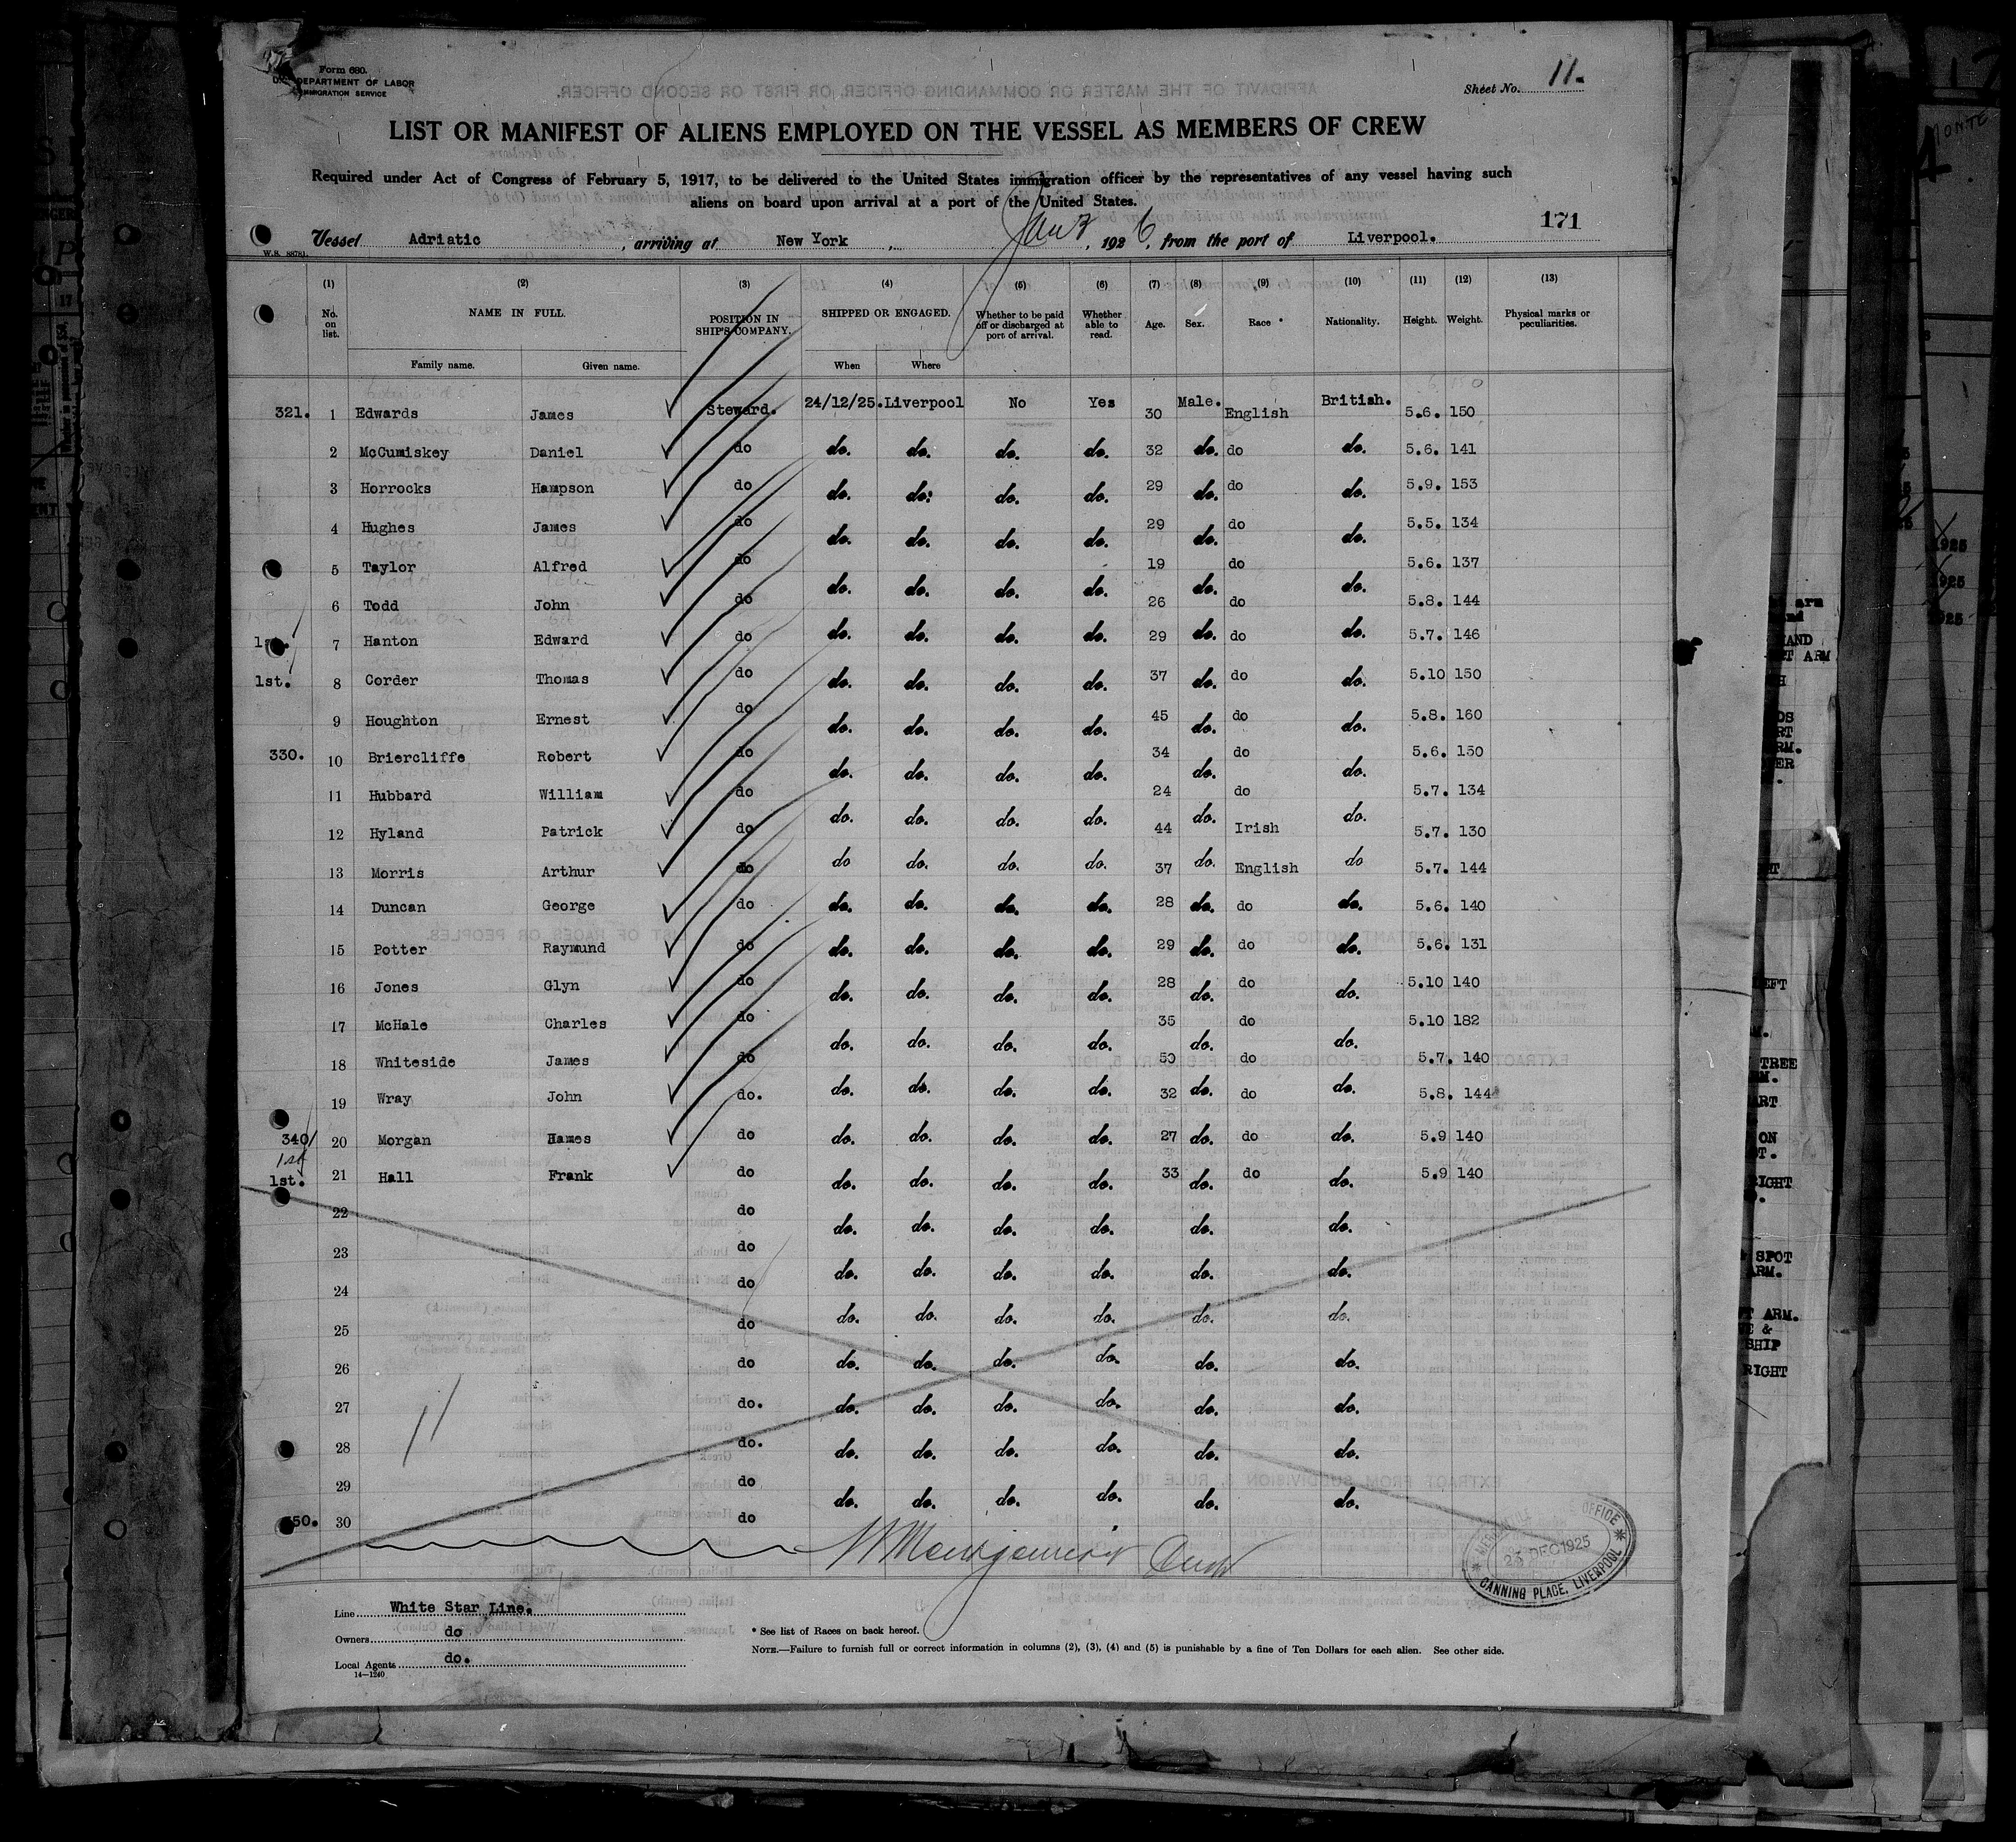 Form 680.
DEPARTMENT OF LABOR
IMMIGRATION SERVICE
Sheet No. 11.
LIST OR MANIFEST OF ALIENS EMPLOYED ON THE VESSEL AS MEMBERS OF CREW
Required under Act of Congress of February 5, 1917, to be delivered to the United States immigration officer by the representatives of any vessel having such
aliens on board upon arrival at a port of the United States.
171
Vessel Adriatic, arriving at New York, Jan 3, 1926, from the port of Liverpool.
W.S. 88781.
(1) (2) (3) (4) (5) (6) (7) (8) (9) (10) (11) (12) (13)
No. on list. NAME IN FULL. POSITION IN SHIP'S COMPANY. SHIPPED OR ENGAGED. Whether to be paid off or discharged at port of arrival. Whether able to read. Age. Sex. Race * Nationality. Height. Weight. Physical marks or peculiarities.
Family name. Given name. When Where
321. 1 Edwards James Steward. 24/12/25. Liverpool No Yes 30 Male. English British. 5.6. 150
2 McCumiskey Daniel do do. do. do. do. 32 do. do do. 5.6. 141
3 Horrocks Hampson do do. do. do. do. 29 do. do do. 5.9. 153
4 Hughes James do do. do. do. do. 29 do. do do. 5.5. 134
5 Taylor Alfred do do. do. do. do. 19 do. do do. 5.6. 137
6 Todd John do do. do. do. do. 26 do. do do. 5.8. 144
1st. 7 Hanton Edward do do. do. do. do. 29 do. do do. 5.7. 146
1st. 8 Corder Thomas do do. do. do. do. 37 do. do do. 5.10 150
9 Houghton Ernest do do. do. do. do. 45 do. do do. 5.8. 160
330. 10 Briercliffe Robert do do. do. do. do. 34 do. do do. 5.6. 150
11 Hubbard William do do. do. do. do. 24 do. do do. 5.7. 134
12 Hyland Patrick do do. do. do. do. 44 do. Irish do. 5.7. 130
13 Morris Arthur do do do. do. do. 37 do. English do 5.7. 144
14 Duncan George do do. do. do. do. 28 do. do do. 5.6. 140
15 Potter Raymund do do. do. do. do. 29 do. do do. 5.6. 131
16 Jones Glyn do do. do. do. do. 28 do. do do. 5.10 140
17 McHale Charles do do. do. do. do. 35 do. do do. 5.10 182
18 Whiteside James do do. do. do. do. 50 do. do do. 5.7. 140
19 Wray John do. do. do. do. do. 32 do. do do. 5.8. 144
340 1st 20 Morgan Hames do do. do. do. do. 27 do. do do. 5.9 140
1st. 21 Hall Frank do do. do. do. do. 33 do. do do. 5.9 140
22 do do. do. do. do. do. do.
23 do do. do. do. do. do. do.
24 do do. do. do. do. do. do.
25 do do. do. do. do. do. do.
26 do do. do. do. do. do. do.
27 do. do. do. do. do. do. do.
28 do. do. do. do. do. do. do.
29 do do. do. do. do. do. do.
30 do
11
23 DEC 1925
CANNING PLACE, LIVERPOOL
Line White Star Line.
Owners do
Local Agents do.
14—1240
* See list of Races on back hereof.
NOTE.—Failure to furnish full or correct information in columns (2), (3), (4) and (5) is punishable by a fine of Ten Dollars for each alien. See other side.